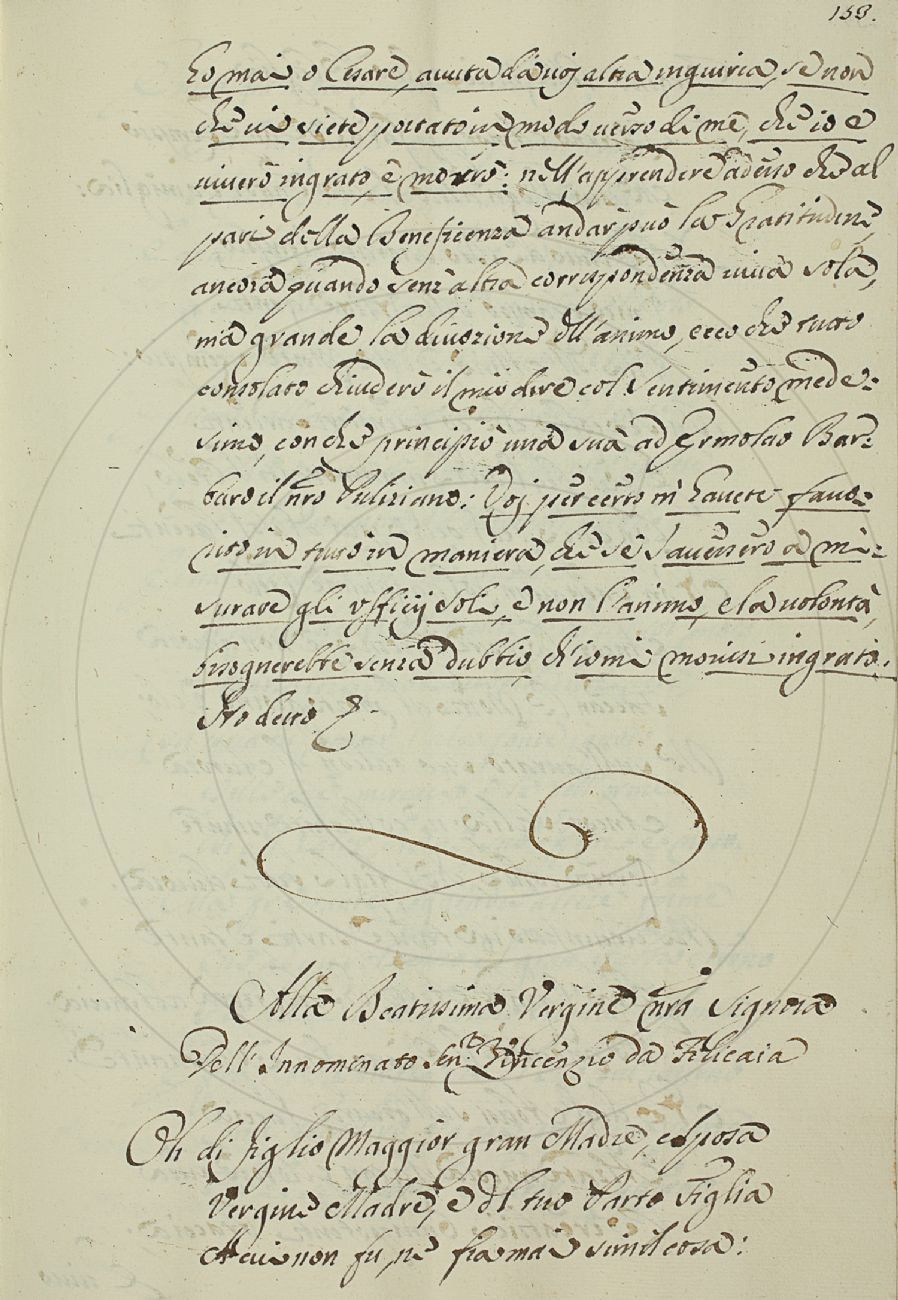 153.
Ho mai o Cesare, avuta da voj altra ingiuria, se non
che vi siete portato in modo verso di me, che io e
viverò ingrato, e morrò: nell'apprendere adesso che al
pari della Beneficenza andar può la Gratitudine,
ancora quando senz'altra corrispondenza viva sola,
mà grande la divozione dell'animo, ecco che tutto
consolato chiuderò il mio dire col sentimento mede=
simo, con che principiò una sua ad Ermolao Bar=
baro il nro Puliziano: Voj per certo m'havete favo=
rito in tutto in maniera, che se s'avessero a mi=
surare gli ufficij soli, e non l'animo, e la volontà,
bisognerebbe senza dubbio, ch'io mi morissi ingrato.
Ho detto
Alla Beatissima Vergine nra Signora
Dell'Innominato Senre Vincenzio da Filicaia
Oh di figlio Maggior gran Madre, e sposa
Vergine Madre, e del tuo Parto Figlia
A cui non fu, ne fia mai simil cosa: